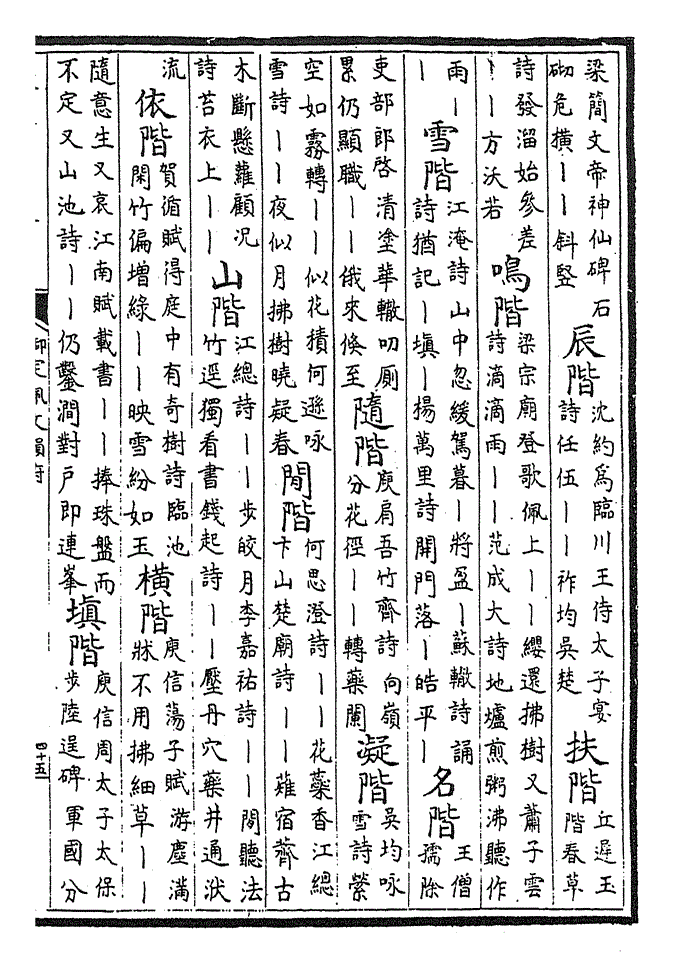 梁簡文帝神仙碑石
砌危橫丨丨斜竪
辰階
沈約爲臨川王侍太子宴
詩任伍丨丨祚均吳楚
扶階
丘遲玉
階春草
詩發溜始參差
丨丨方沃若
鳴階
梁宗廟登歌佩上丨丨纓還拂樹又蕭子雲
詩滴滴雨丨丨范成大詩地爐煎粥沸聽作
雨丨
丨
雪階
江淹詩山中忽緩駕暮丨將盈丨蘇轍詩誦
詩猶記丨塡丨揚萬里詩開門落丨皓平丨
名階
王僧
孺除
吏部郎啓清塗華轍叨厠
累仍顯職丨丨俄來倏至
隨階
庾肩吾竹齋詩向嶺
分花徑丨丨轉藥闌
凝階
吳均咏
雪詩縈
空如霧轉丨丨似花積何遜咏
雪詩丨丨夜似月拂樹曉疑春
閒階
何思澄詩丨丨花蘂香江總
卞山楚廟詩丨丨薙宿薺古
木斷懸蘿顧况
詩苔衣上丨丨
山階
江總詩丨丨步皎月李嘉祐詩丨丨閒聽法
竹逕獨看書錢起詩丨丨壓丹穴藥井通洑
流
依階
賀循賦得庭中有奇樹詩臨池
閑竹偏增綠丨丨映雪紛如玉
橫階
庾信蕩子賦游塵滿
牀不用拂細草丨丨
隨意生又哀江南賦載書丨丨捧珠盤而
不定又山池詩丨丨仍鑿澗對户即連峯
塡階
庾信周太子太保
步陸逞碑軍國分
御定佩文韻府
四十五